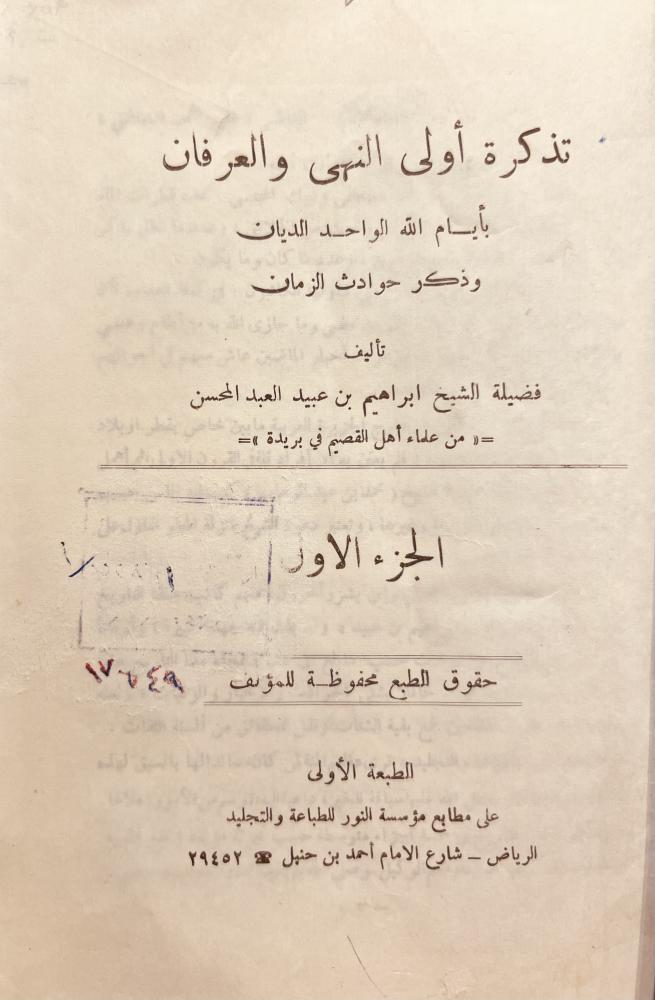 تذكرة أولى النهى والعرفان
بأيــام الله الواحــد الديان
وذكر حوادث الزمان
تأليف
فضيلة الشيخ ابراهيم بن عبيد العبد المحسن
=« من علماء أهل القصيم في بريدة »=
الجزء الاول
حقوق الطبع محفوظــة للمؤلف
الطبعة الأولى
على مطابع مؤسسة النور للطباعة والتجليد
الرياض ــ شارع الامام أحمد بن حنبل ☎ ٢٩٤٥٢